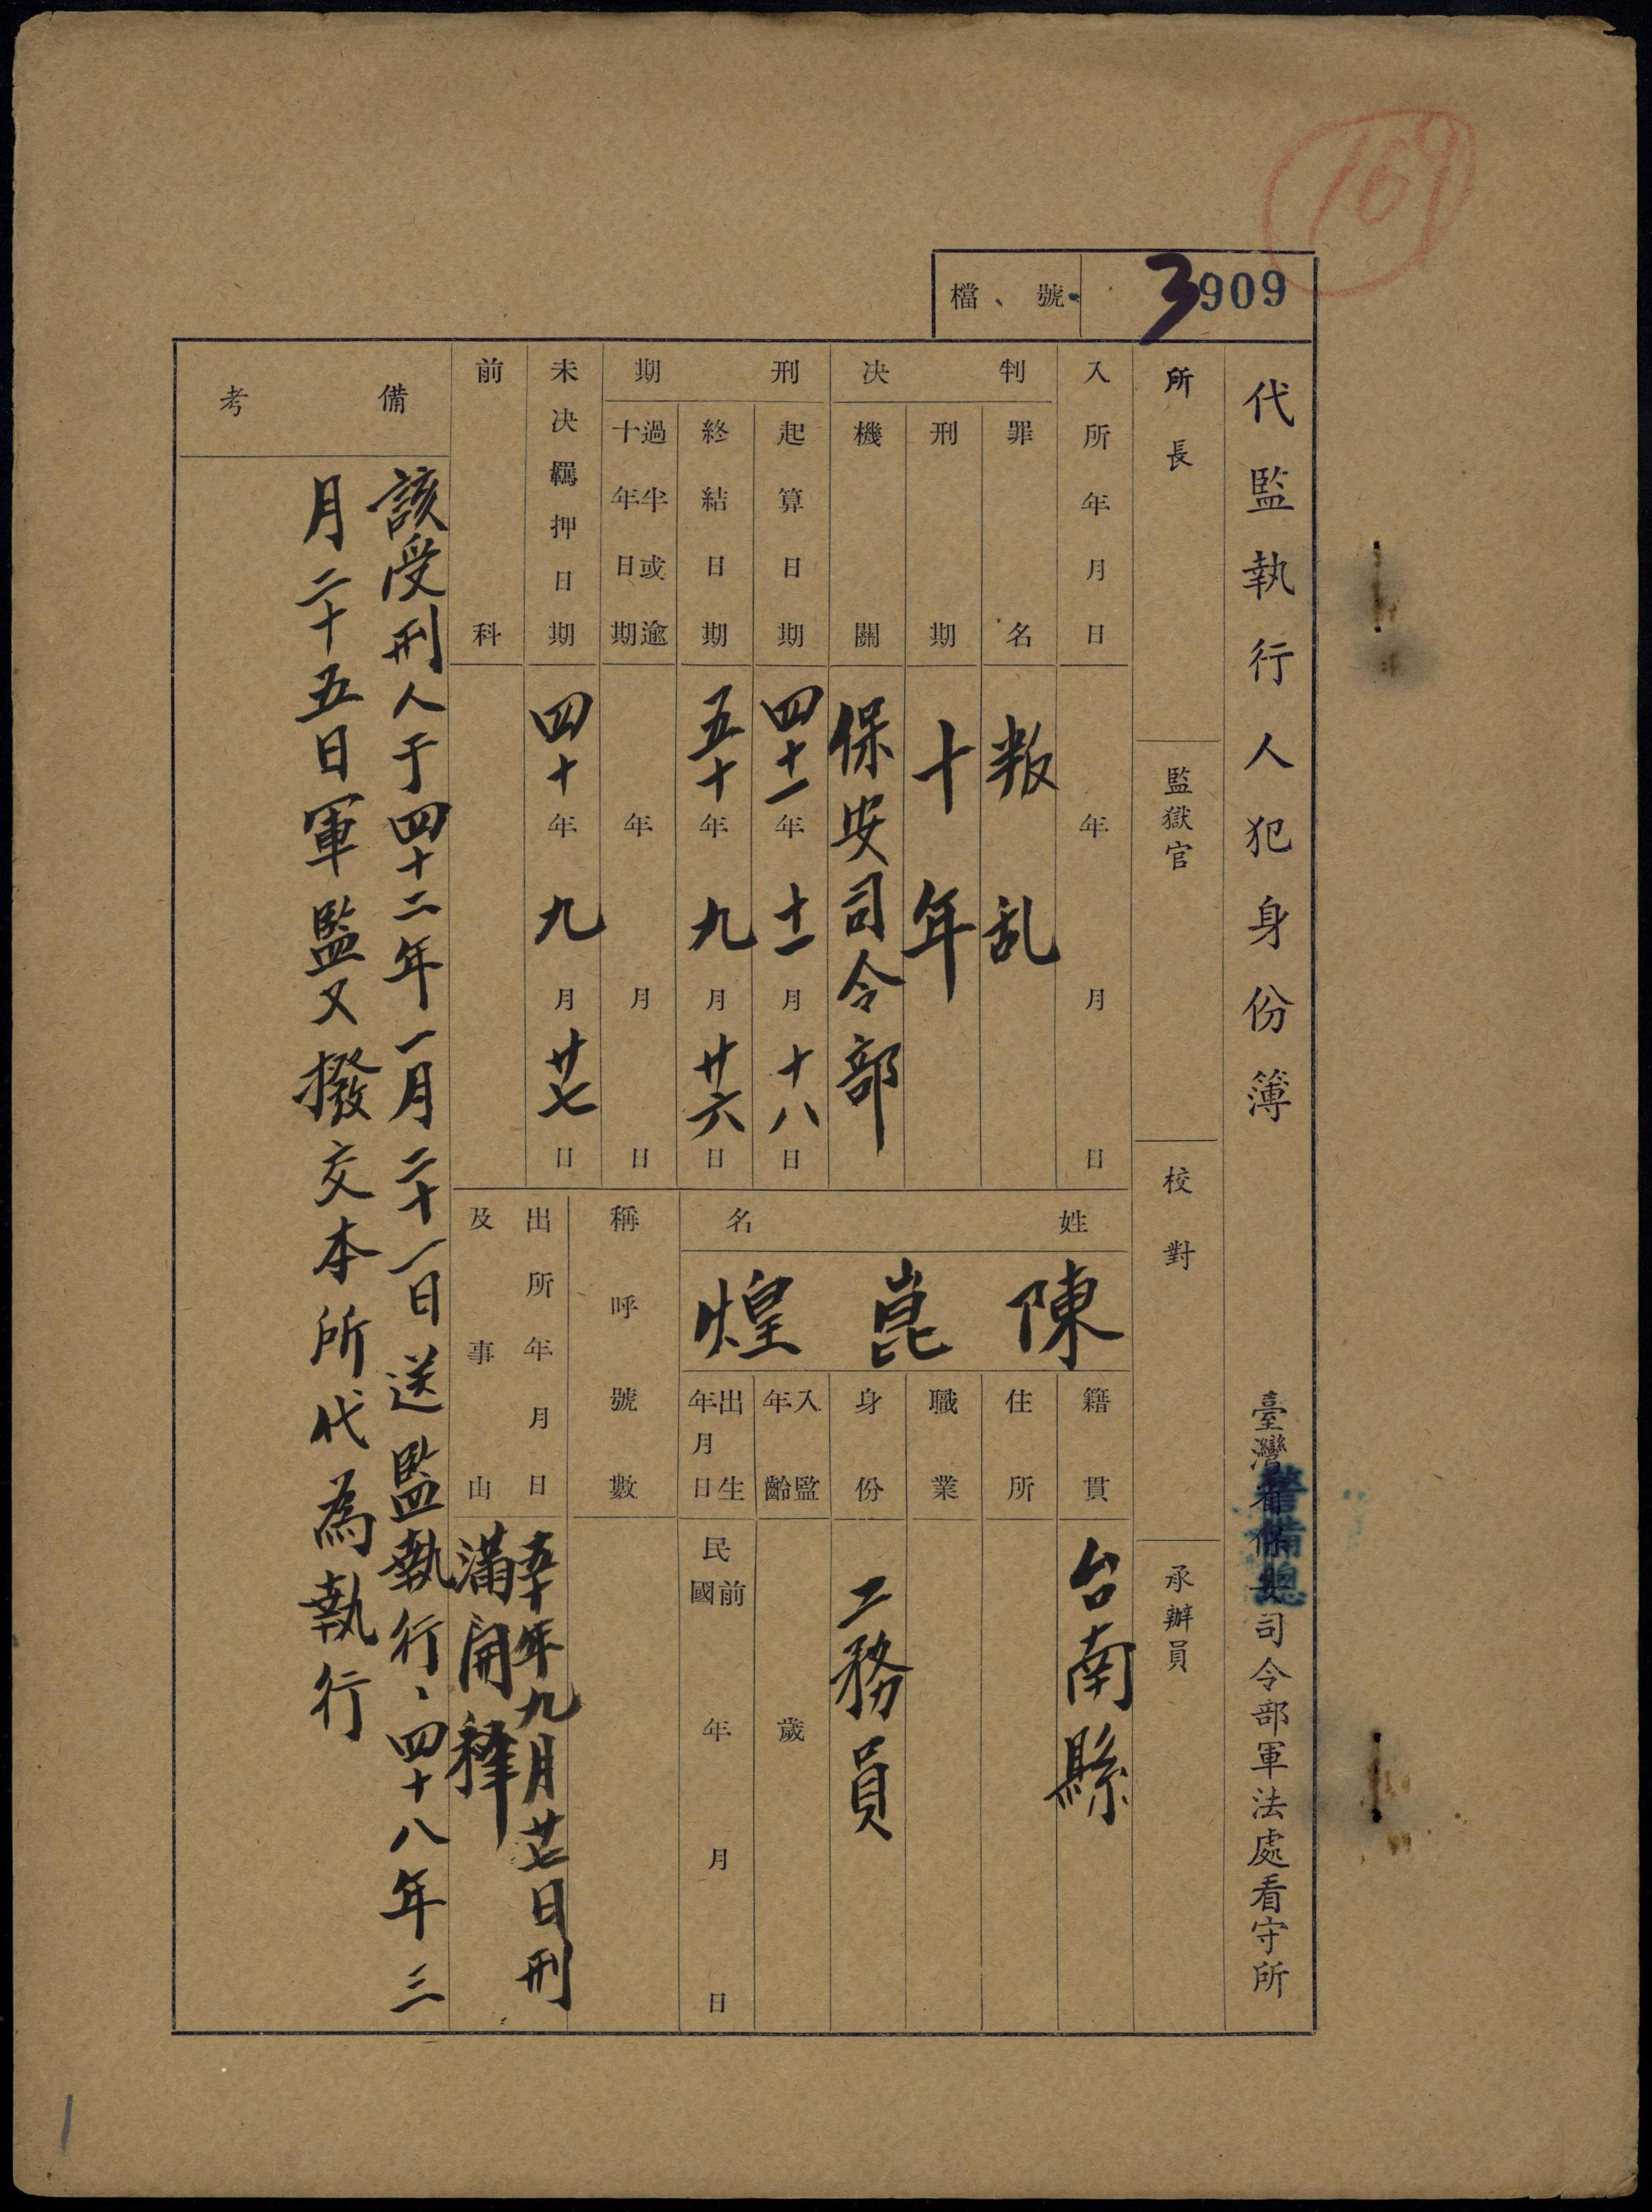 169
檔號 3909
代監執行人犯身份簿
臺灣省保安司令部軍法處看守所
警備總
所長
監獄官
校對
承辦員
入所年月日 年 月 日
判決
罪名 叛乱
刑期 十年
機關 保安司令部
刑期
起算日期 四十一年十一月十八日
終結日期 五十年九月廿六日
過半或逾十年日期 年 月 日
未決羈押日期 四十年九月廿七日
前科
姓名 陳崑煌
籍貫 台南縣
住所
職業
身份 工務員
入監年齡 歲
出生年月日 民國前 年 月 日
稱呼號數
出所年月日及事由 五十年九月廿七日刑
滿開釋
備考
該受刑人于四十二年一月二十一日送監執行、四十八年三
月二十五日軍監又撥交本所代為執行
1